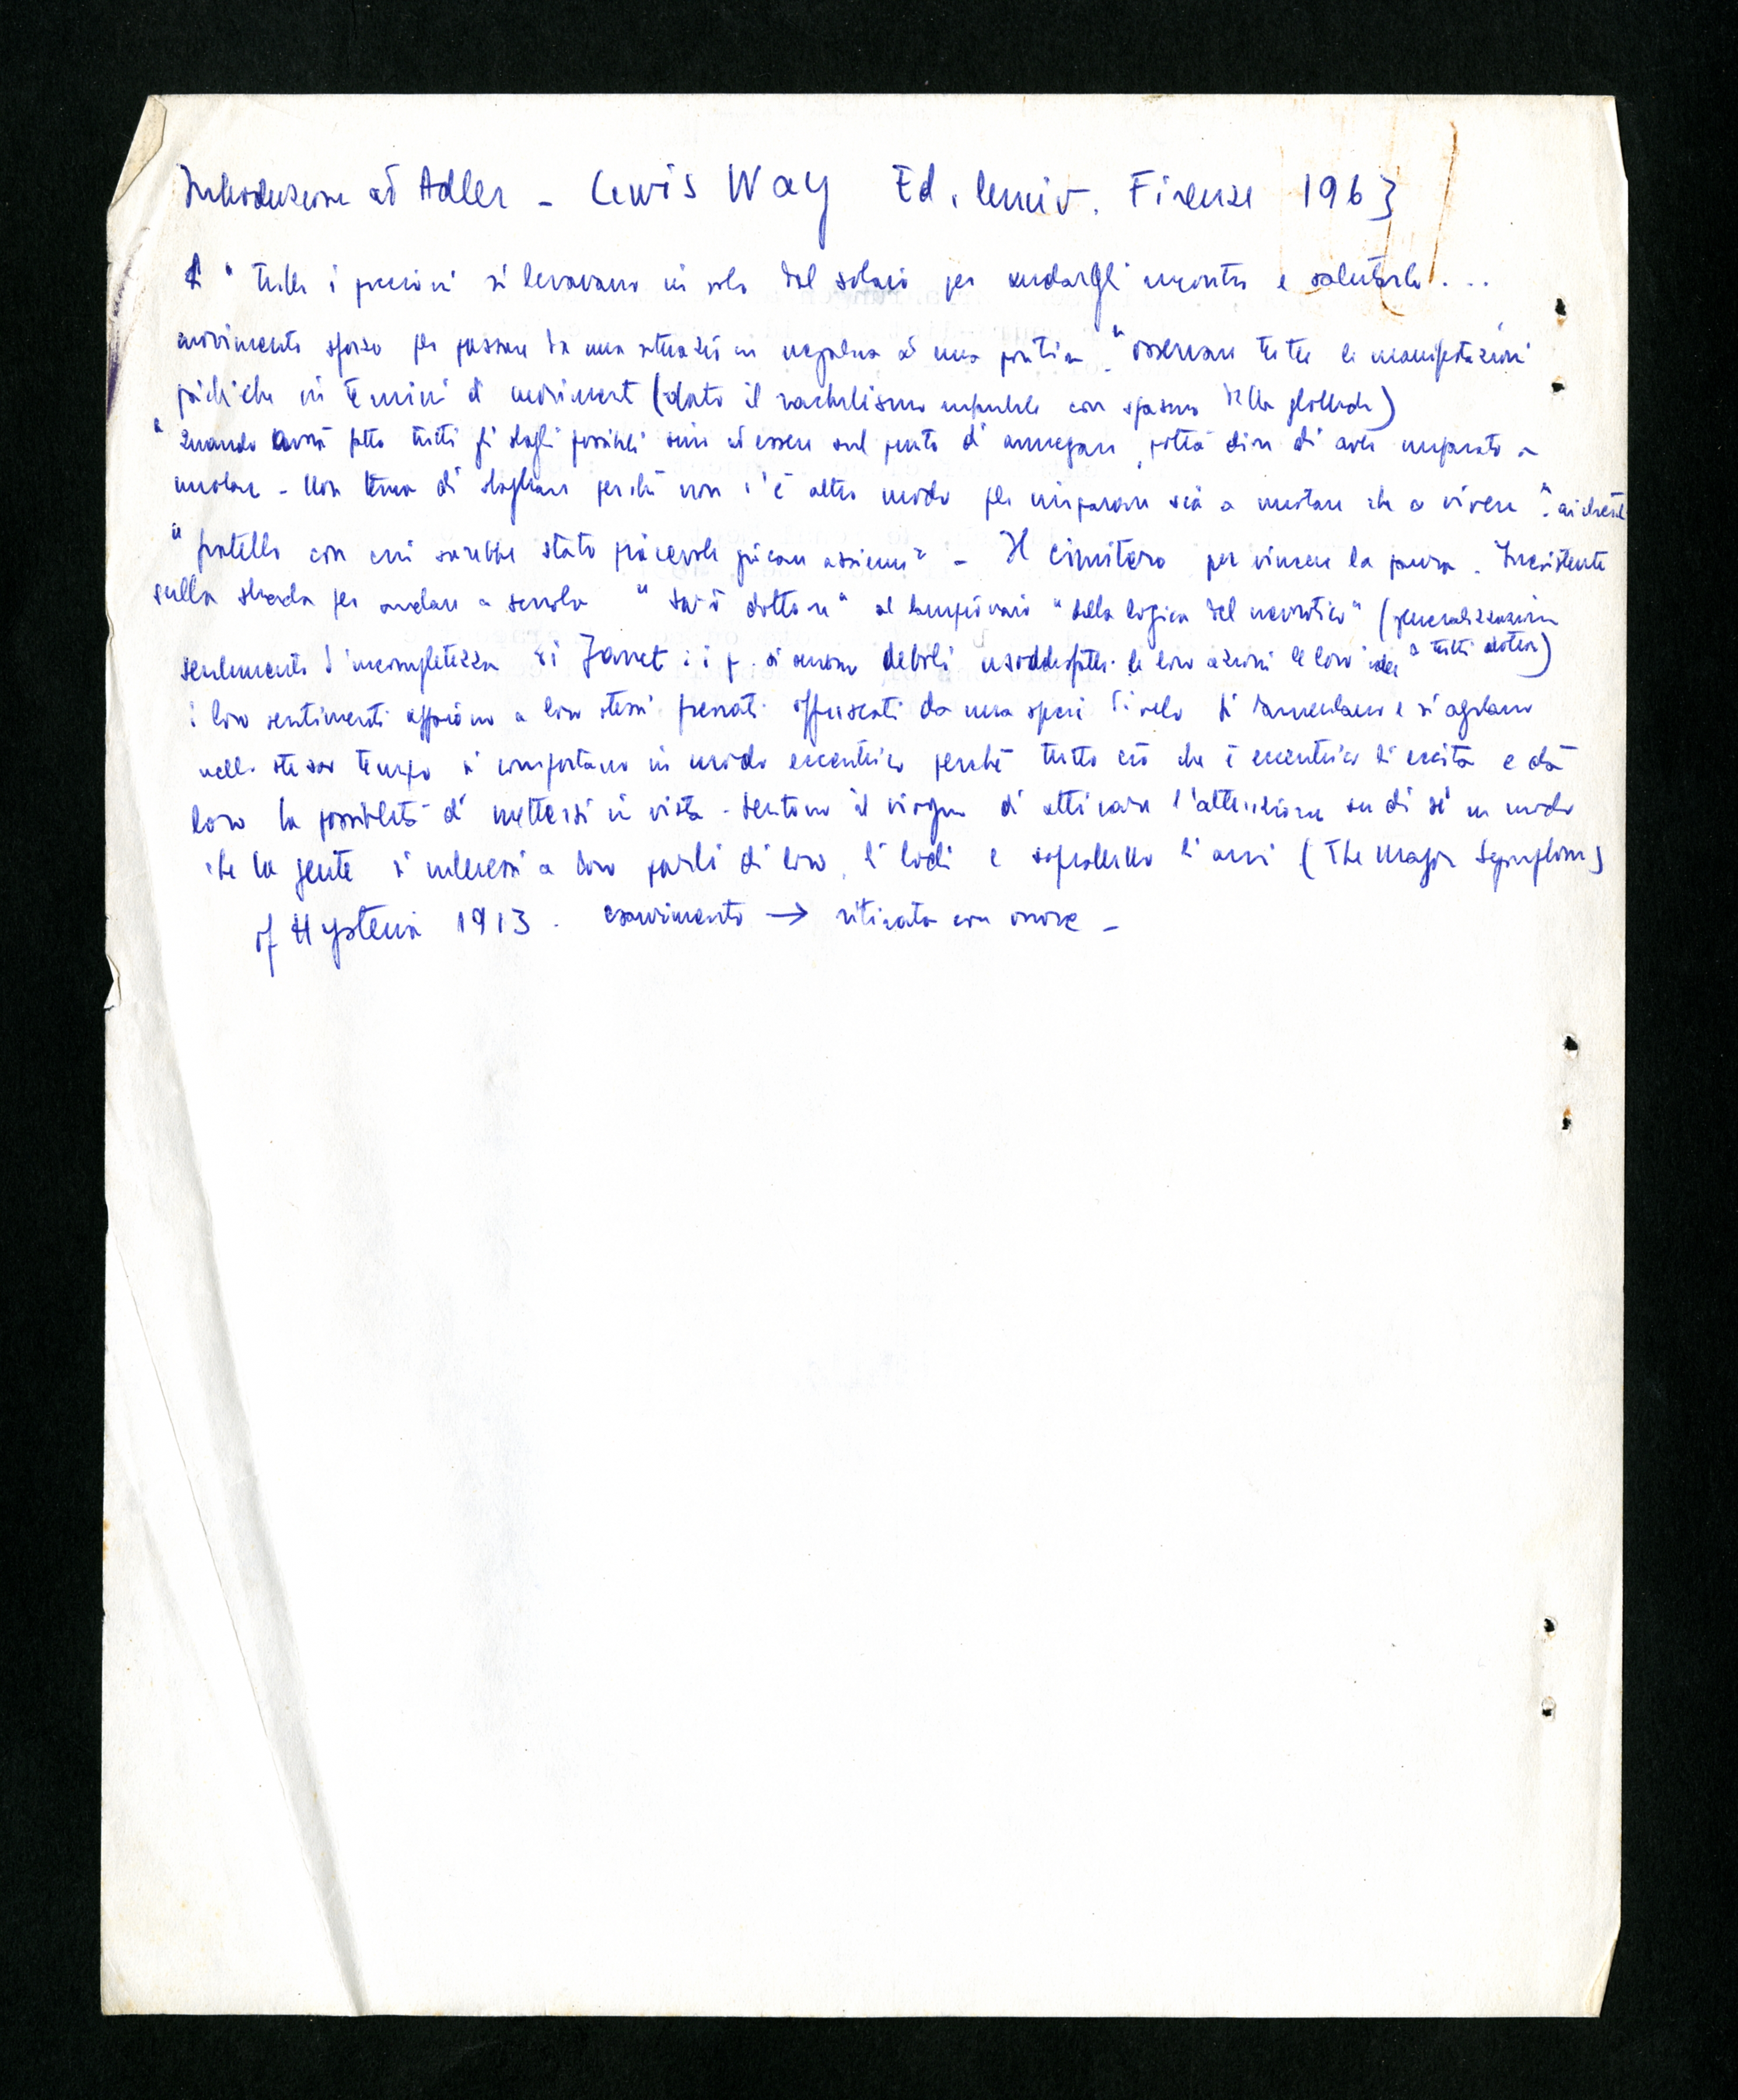 Introduzione ad Adler - Lewis Way Ed. Univ. Firenze 1963
" tutti i piccioni si levavano in volo dal solaio per andargli incontro e salutarlo...
movimento sforzo per passare da una situazione negativa ad una positiva. "osservare tutte le manifestazioni
psichiche in termini di movimento (dato il rachitismo infantile con spasmo della glottide)
"Quando avrà fatto tutti gli sbagli possibili sino ad essere sul punto di annegare, potrà dire di aver imparato a
nuotare - Non tema di sbagliare perché non c'è altro modo per imparare sia a nuotare che a vivere".
" fratello con cui sarebbe stato piacevole giocare assieme" - Il cimitero per vincere la paura. Inesistente
sulla strada per andare a scuola " sarò dottore" al lampionaio "della logica del nevrotico" (generalizzazione
sentimento d'incompletezza di Janet: i p. si sentono deboli insoddisfatti. le loro azioni le loro idee a tutti)
i loro sentimenti appaiono a loro stessi offuscati da una specie di velo si lamentano e si agitano
nello stesso tempo si comportano in modo eccentrico perché tutto ciò che è eccentrico li eccita e dà
loro la possibilità di mettersi in vista - sentono il bisogno di attirare l'attenzione su di sé in modo
che la gente si interessi a loro parli di loro, li lodi e soprattutto li ami (The Major Symptoms
of Hysteria 1913. esaurimento → ritirata con onore -